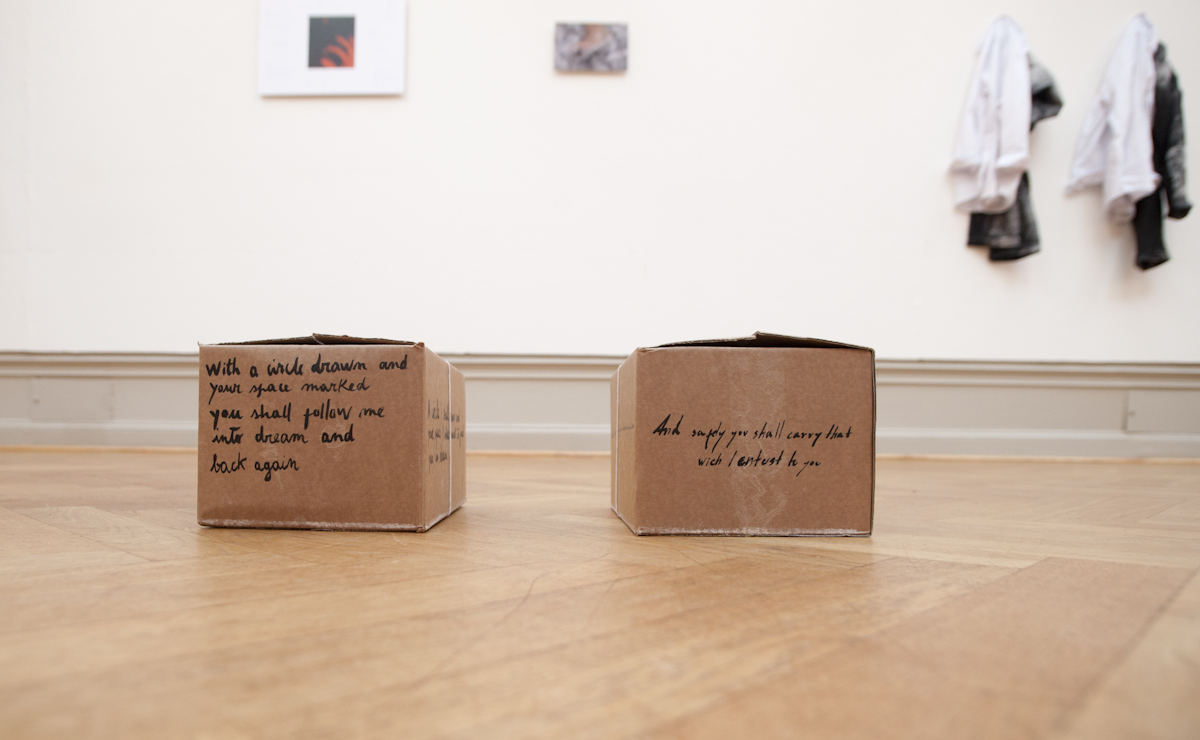 With a circle drawn and
your space marked
you shall follow me
into dream and
back again
And safely you shall carry that
wich I entust to you